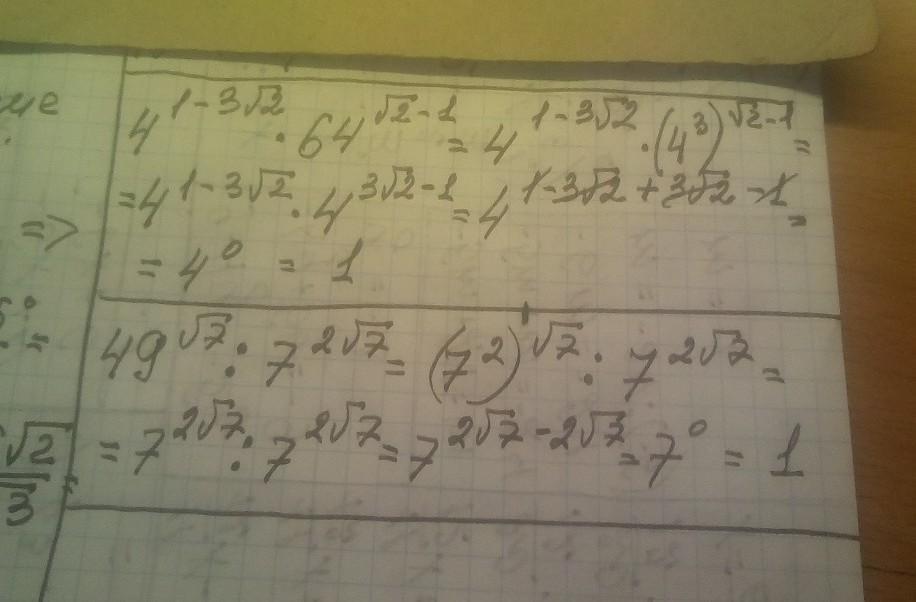 =>
√2
3
4^{1-3√2} · 64^{√2-1} = 4^{1-3√2} · (4^3)^{√2-1} =
= 4^{1-3√2} · 4^{3√2-1} = 4^{1-3√2+3√2-1} =
= 4^0 = 1
49^{√7} : 7^{2√7} = (7^2)^{√7} : 7^{2√7} =
= 7^{2√7} : 7^{2√7} = 7^{2√7-2√7} = 7^0 = 1